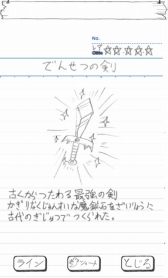 No.
☆☆☆☆☆
でんせつの剣
古くからつたわる最強の剣
かぎりなくじゅんすいな魔鉱石をざいりょうに
古代のぎじゅつでつくられた。
ライン
とじる